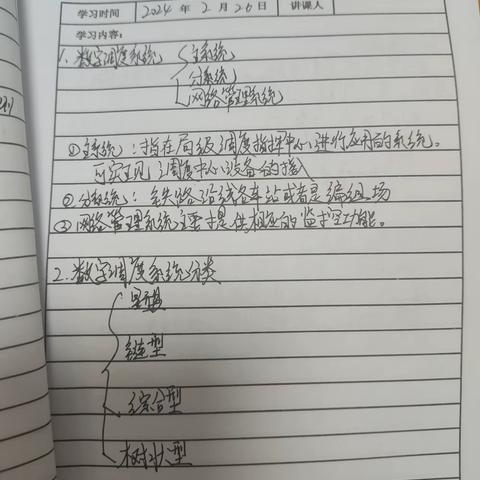 学习时间 2024 年 2 月 26 日 讲课人
学习内容:
1. 数字调度系统 主系统
分系统
网络管理系统
①主系统:指在局级调度指挥中心进行应用的系统。
可实现调度中心设备的接入
②分系统:铁路沿线各车站或者是编组场
③网络管理系统主要提供相应的监控功能。
2. 数字调度系统分类
星型
链型
综合型
树状型